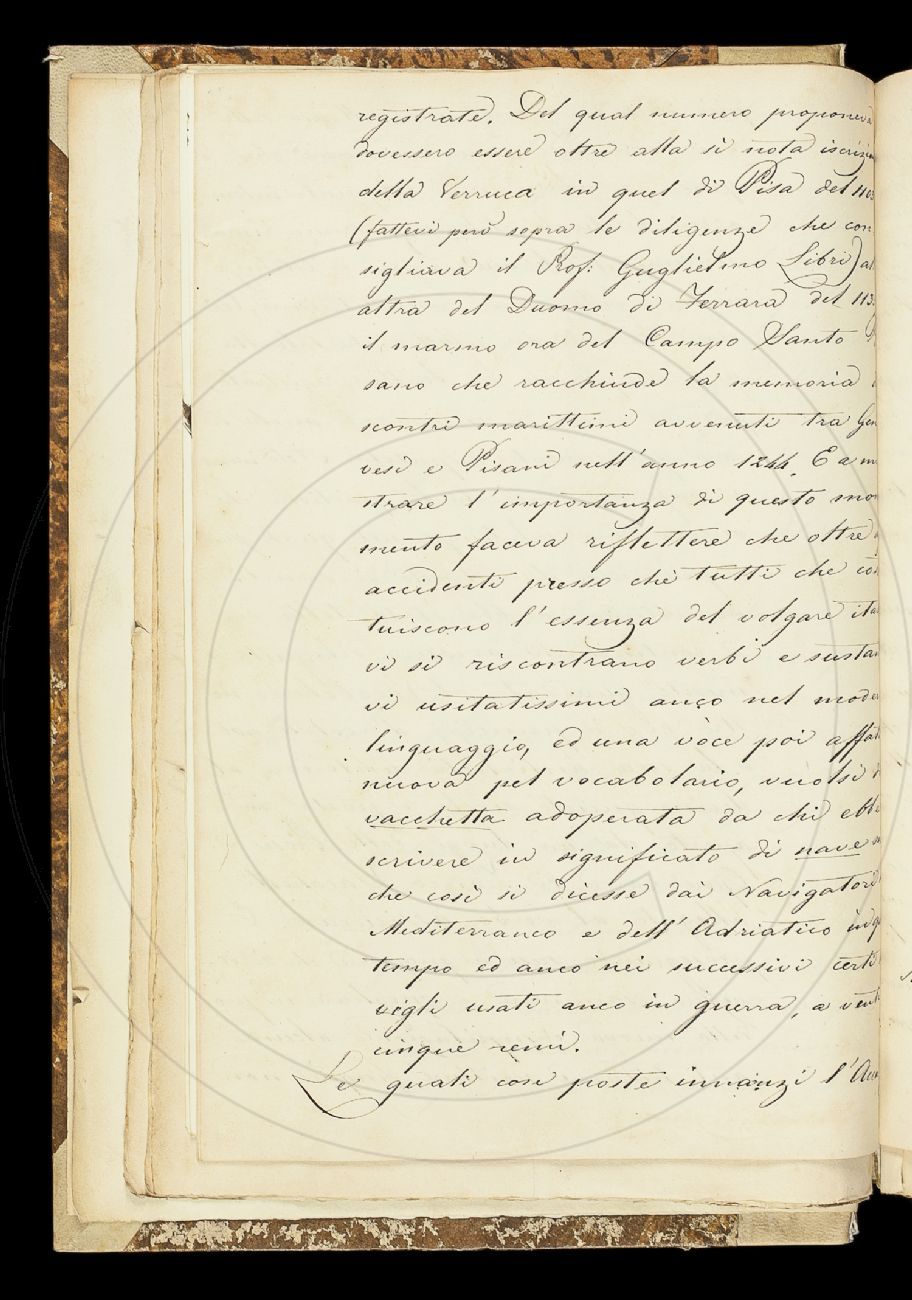 registrate. Del qual numero proponeva
dovessero essere oltre alla sì nota iscrizio
della Verruca in quel di Pisa del 1103
(fattevi però sopra le diligenze che con
sigliava il Prof: Guglielmo Libri) al
altra del Duomo di Ferrara del 113
il marmo ora del Campo Santo P
sano che racchiude la memoria
scontri marittimi avvenuti tra Gen
vesi e Pisani nell'anno 1244. E a m
strare l'importanza di questo mon
mento faceva riflettere che oltre
accidenti presso che tutti che con
tuiscono l'essenza del volgare ita
vi si riscontrano verbi e sustan
vi usitatissimi anco nel moder
linguaggio, ed una voce poi affat
nuova pel vocabolario, vuolsi
vacchetta adoperata da chi ebbe
scrivere in significato di nave
che così si dicesse dai Navigatori
Mediterraneo e dell'Adriatico in q
tempo ed anco nei successivi certi
vigli usati anco in guerra, a vent
cinque remi.
Le quali cose poste innanzi l'Acc